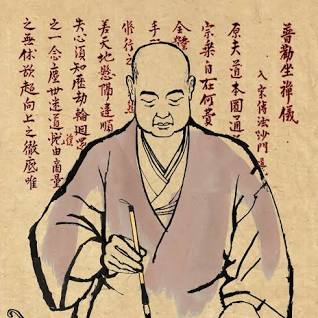 普勸坐禪儀
入宋傳法沙門
原夫道本圓通
宗乘自在何費
全
手
修行之
差天地懸隔違順
失心須知歷劫輪迴
之一念塵世迷道由商量
之無休欲超向上之徹底唯